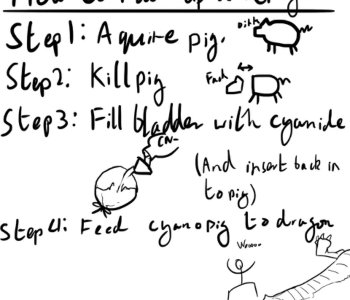 How to
Step1: Aquire pig.
Step2: Kill pig
Step3: Fill bladder with cyanide
CN-
(And insert back in
to pig)
Step4: Feed cyanopig to dragon